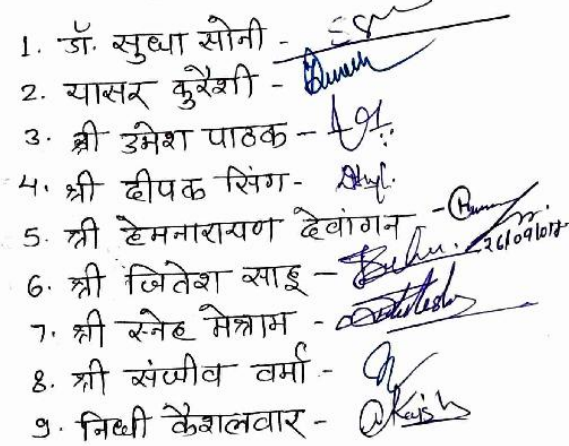 1. डॉ. सुधा सोनी -
2. यासर कुरैशी -
3. श्री उमेश पाठक -
4. श्री दीपक सिंग -
5. श्री हेमनारायण देवांगन -
26/09/018
6. श्री जितेश साहू -
7. श्री स्नेह मेश्राम -
8. श्री संजीव वर्मा -
9. निधी कैशलवार -